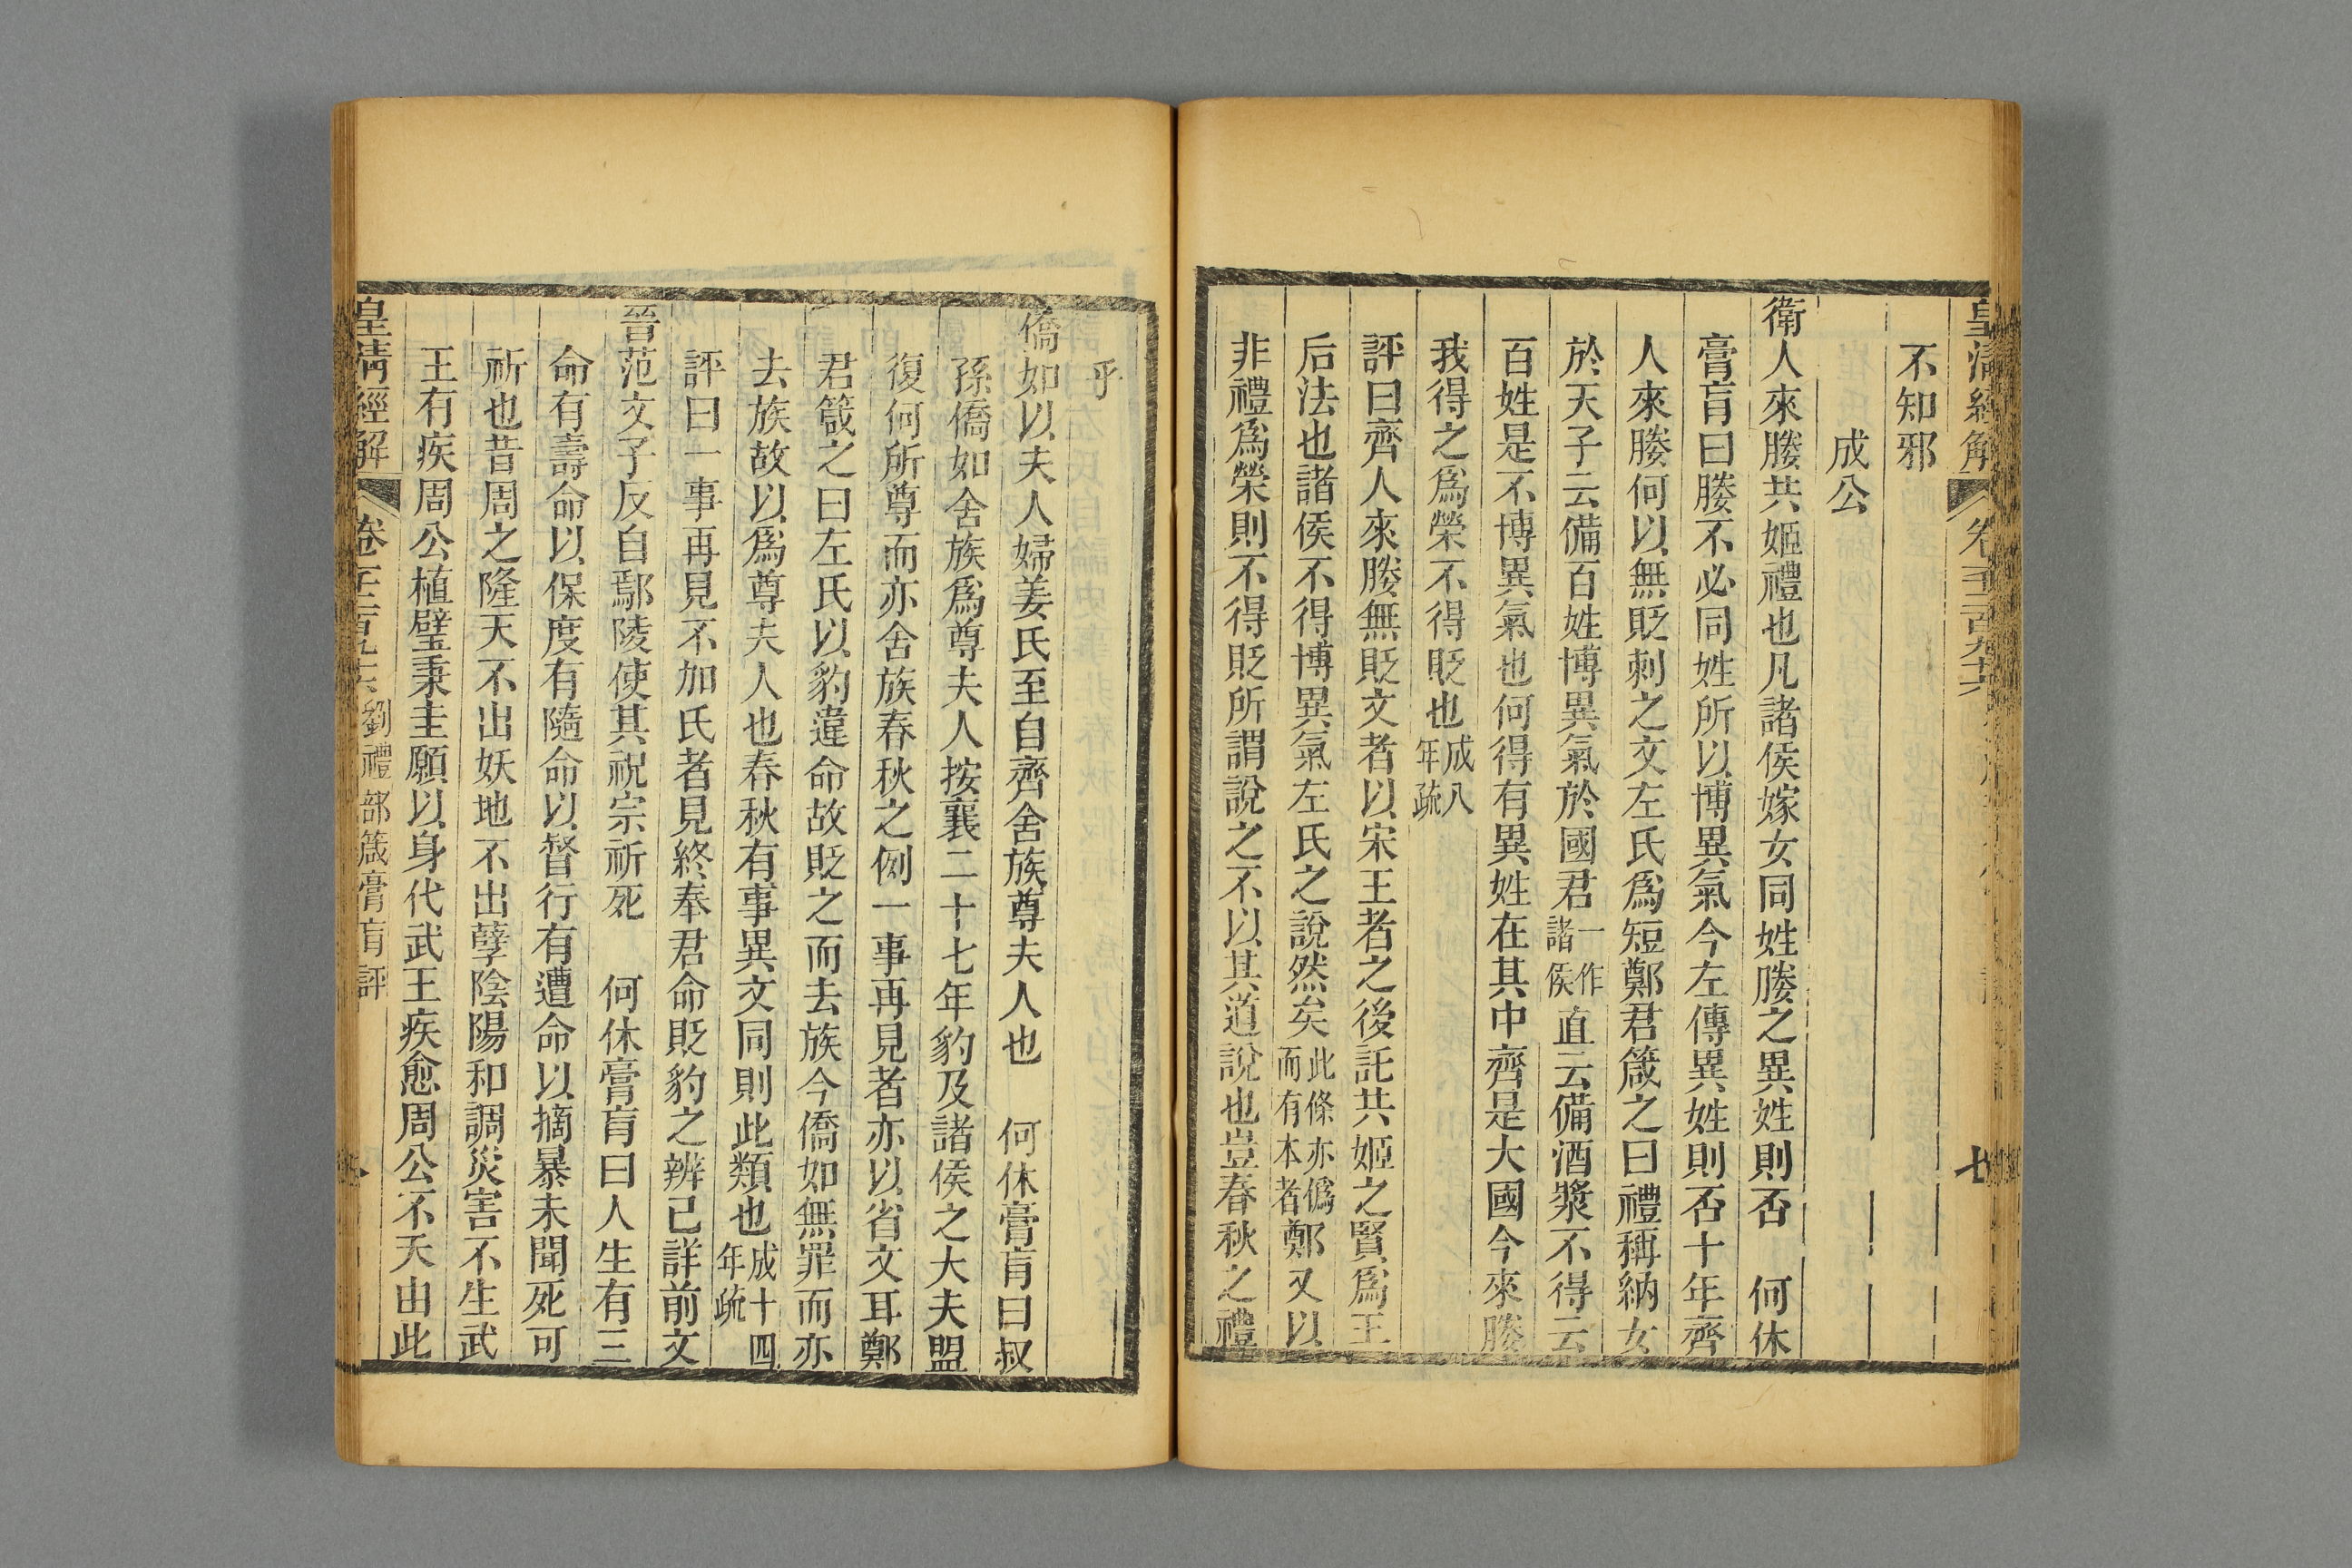 皇清經解 卷千二百九十六
不知邪
成公
衛人來媵共姬禮也凡諸侯嫁女同姓媵之異姓則否 何休
膏肓曰媵不必同姓所以博異氣今左傳異姓則否十年齊
人來媵何以無貶刺之文左氏爲短鄭君箴之曰禮稱納女
於天子云備百姓博異氣於國君一作諸侯直云備酒漿不得云
百姓是不博異氣也何得有異姓在其中齊是大國今來媵
我得之爲榮不得貶也成八年疏
評曰齊人來媵無貶文者以宋王者之後託共姬之賢爲王
后法也諸侯不得博異氣左氏之說然矣此條亦僞而有本者鄭又以
非禮爲榮則不得貶所謂說之不以其道說也豈春秋之禮
乎
僑如以夫人婦姜氏至自齊舍族尊夫人也 何休膏肓曰叔
孫僑如舍族爲尊夫人按襄二十七年豹及諸侯之大夫盟
復何所尊而亦舍族春秋之例一事再見者亦以省文耳鄭
君箴之曰左氏以豹違命故貶之而去族今僑如無罪而亦
去族故以爲尊夫人也春秋有事異文同則此類也成十四年疏
評曰一事再見不加氏者見終奉君命貶豹之辨已詳前文
晉范文子反自鄢陵使其祝宗祈死 何休膏肓曰人生有三
命有壽命以保度有隨命以督行有遭命以摘暴未聞死可
祈也昔周之隆天不出妖地不出孽陰陽和調災害不生武
王有疾周公植璧秉圭願以身代武王疾愈周公不夭由此
皇清經解 卷千二百九十六 劉禮部箴膏肓評